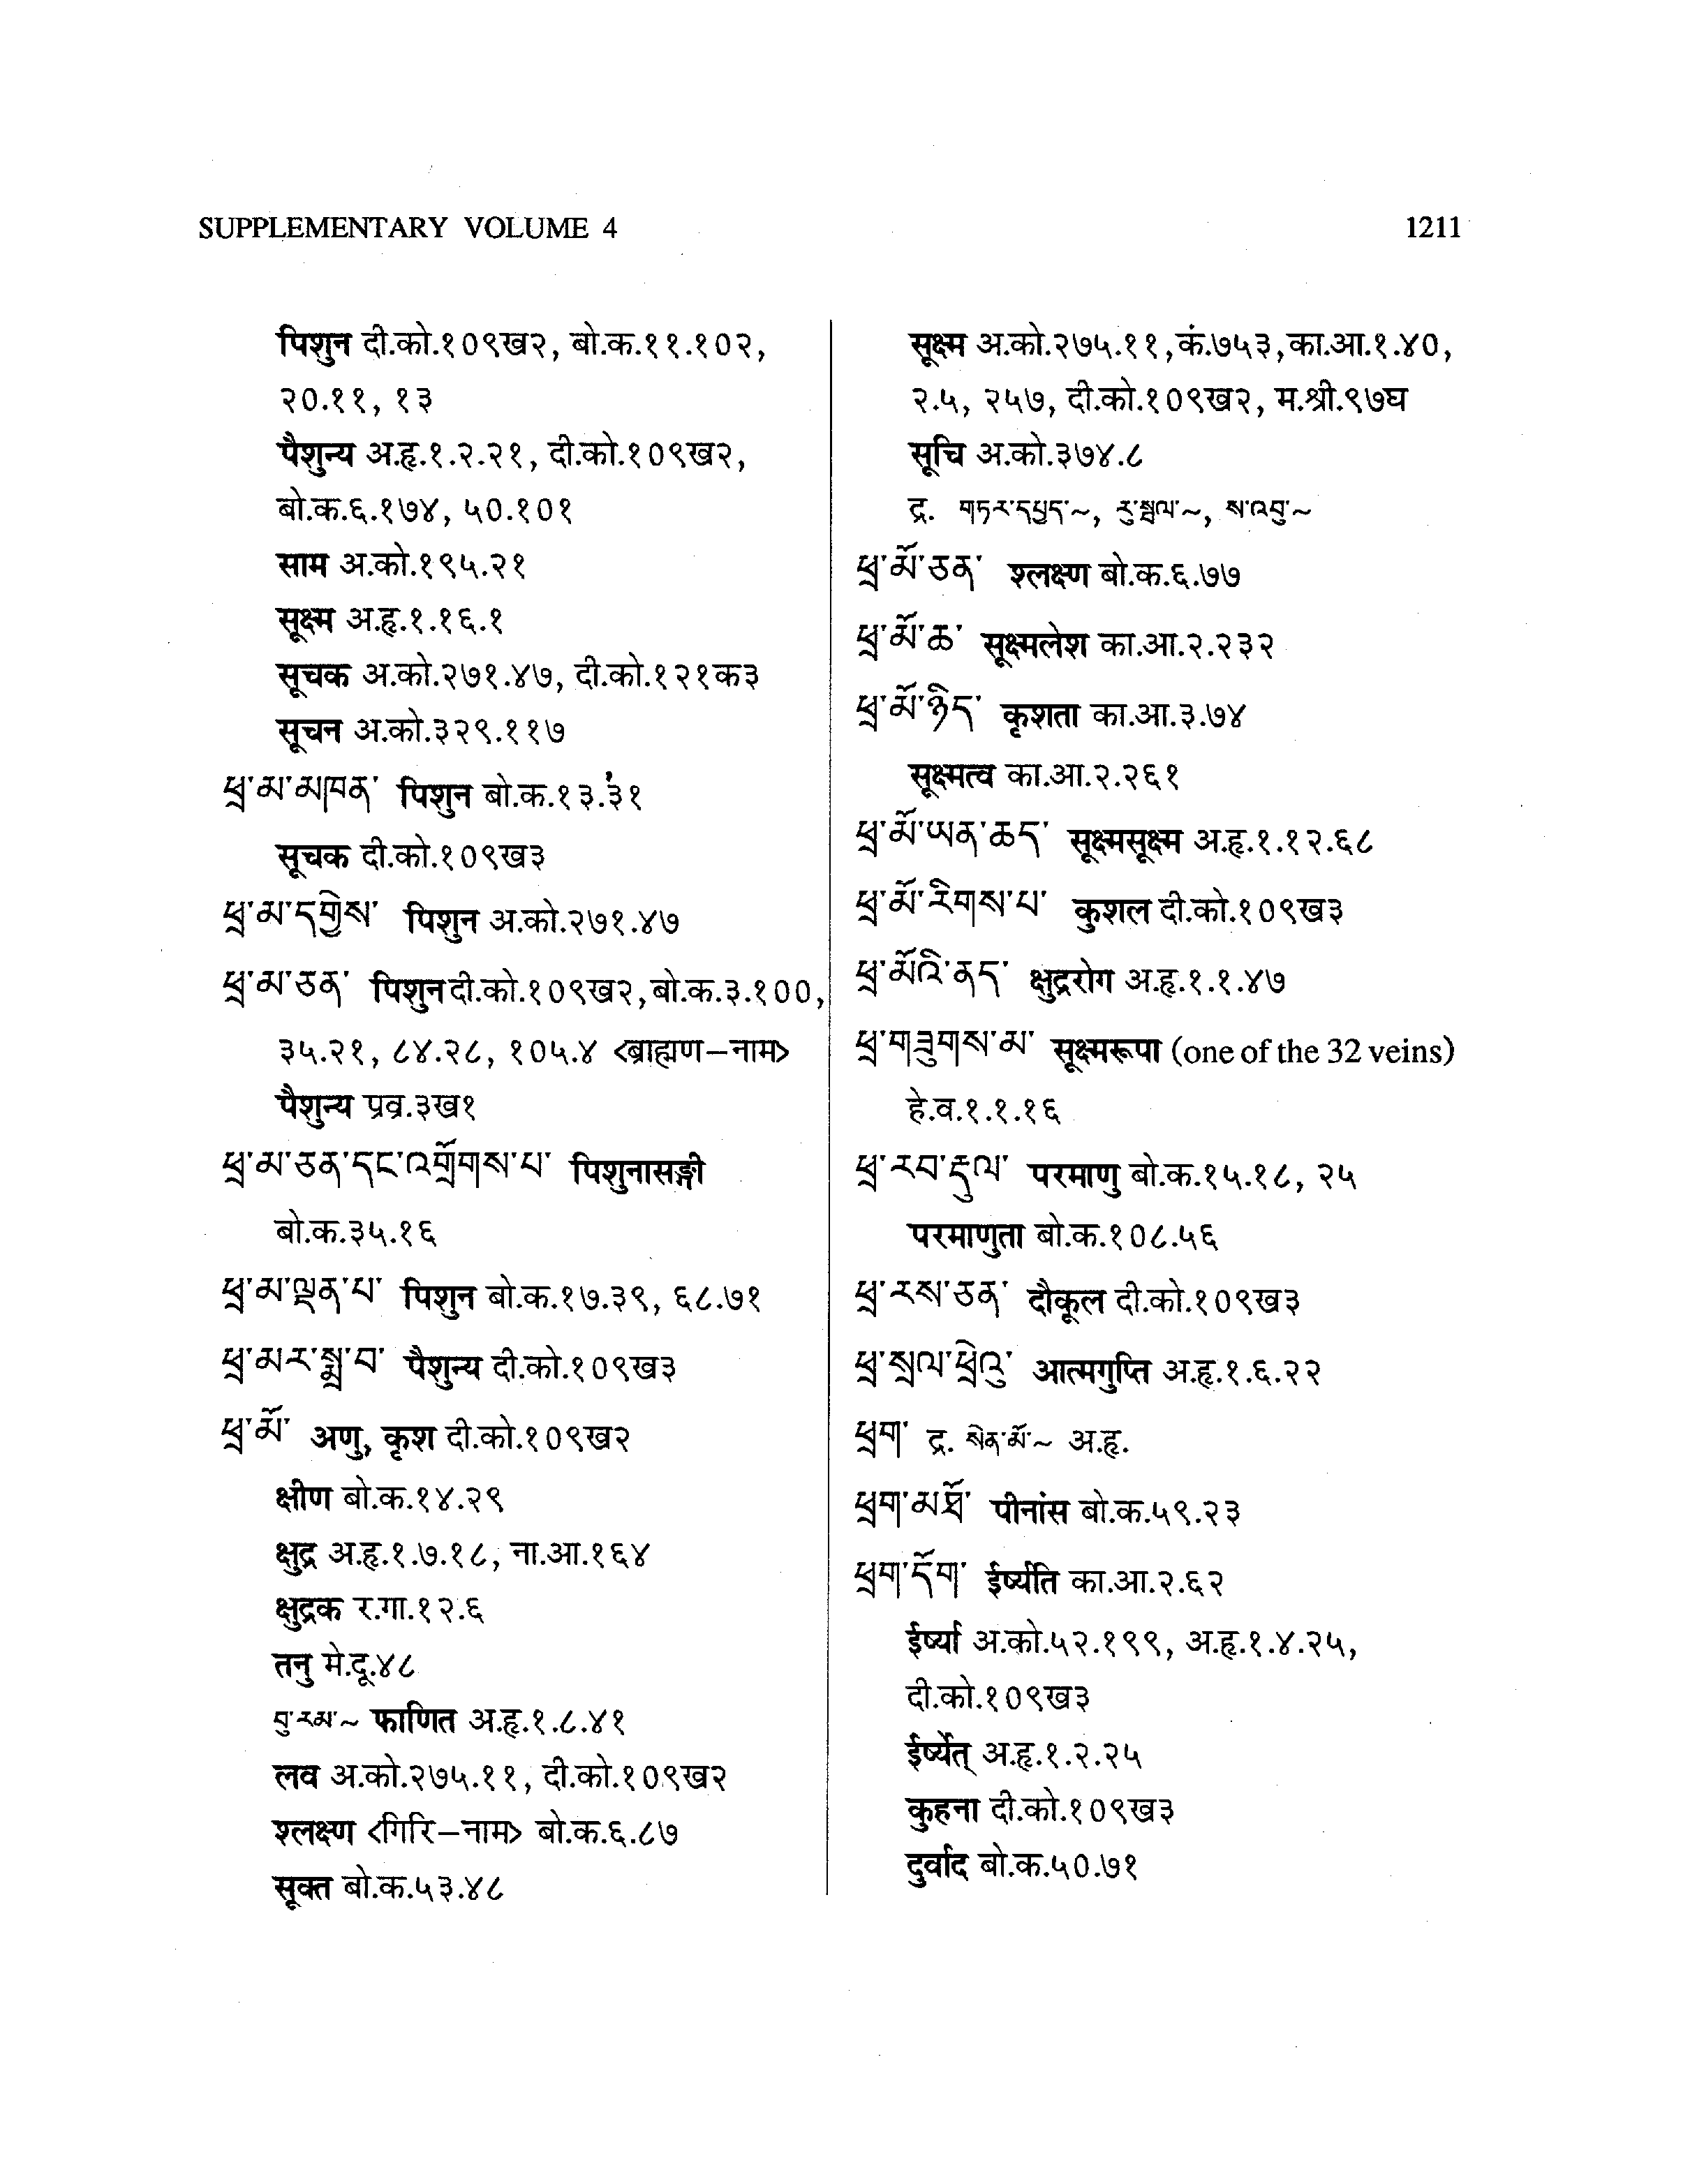 SUPPLEMENTARY VOLUME 4 1211
पिशुन दी.को.१०९ख२, बो.क.११.१०२,
२०.११, १३
पैशुन्य अ.हृ.१.२.२१, दी.को.१०९ख२,
बो.क.६.१७४, ५०.१०१
साम अ.को.१९५.२१
सूक्ष्म अ.हृ.१.१६.१
सूचक अ.को.२७१.४७, दी.को.१२१क३
सूचन अ.को.३२९.११७
ཕྲ་མ་མཁན་ पिशुन बो.क.१३.३१
सूचक दी.को.१०९ख३
ཕྲ་མ་དགྱེས་ पिशुन अ.को.२७१.४७
ཕྲ་མ་ཅན་ पिशुन दी.को.१०९ख२, बो.क.३.१००,
३५.२१, ८४.२८, १०५.४ <ब्राह्मण–नाम>
पैशुन्य प्रव्र.३ख१
ཕྲ་མ་ཅན་དང་འགྲོགས་པ་ पिशुनासङ्गी
बो.क.३५.१६
ཕྲ་མ་ལྡན་པ་ पिशुन बो.क.१७.३९, ६८.७१
ཕྲ་མར་སྨྲ་བ་ पैशुन्य दी.को.१०९ख३
ཕྲ་མོ་ अणु, कृश दी.को.१०९ख२
क्षीण बो.क.१४.२९
क्षुद्र अ.हृ.१.७.१८, ना.आ.१६४
क्षुद्रक र.गा.१२.६
तनु मे.दू.४८
བུ་རམ་~ फाणित अ.हृ.१.८.४१
लव अ.को.२७५.११, दी.को.१०९ख२
श्लक्ष्ण <गिरि–नाम> बो.क.६.८७
सूक्त बो.क.५३.४८
सूक्ष्म अ.को.२७५.११, कं.७५३, का.आ.१.४०,
२.५, २५७, दी.को.१०९ख२, म.श्री.९७घ
सूचि अ.को.३७४.८
द्र. གཏར་དཔྱད་~, རུ་སྦལ་~, ས་འབུ་~
ཕྲ་མོ་ཅན་ श्लक्ष्ण बो.क.६.७७
ཕྲ་མོ་ཆ་ सूक्ष्मलेश का.आ.२.२३२
ཕྲ་མོ་ཉིད་ कृशता का.आ.३.७४
सूक्ष्मत्व का.आ.२.२६१
ཕྲ་མོ་ཡན་ཆད་ सूक्ष्मसूक्ष्म अ.हृ.१.१२.६८
ཕྲ་མོ་རིགས་པ་ कुशल दी.को.१०९ख३
ཕྲ་མོའི་ནད་ क्षुद्ररोग अ.हृ.१.१.४७
ཕྲ་གཟུགས་མ་ सूक्ष्मरूपा (one of the 32 veins)
हे.व.१.१.१६
ཕྲ་རབ་རྡུལ་ परमाणु बो.क.१५.१८, २५
परमाणुता बो.क.१०८.५६
ཕྲ་རས་ཅན་ दौकूल दी.को.१०९ख३
ཕྲ་སྲལ་ཕྲེའུ་ आत्मगुप्ति अ.हृ.१.६.२२
ཕྲག་ द्र. སེན་མོ་~ अ.हृ.
ཕྲག་མཐོ་ पीनांस बो.क.५९.२३
ཕྲག་དོག་ ईर्ष्यति का.आ.२.६२
ईर्ष्या अ.को.५२.१९९, अ.हृ.१.४.२५,
दी.को.१०९ख३
ईर्ष्येत् अ.हृ.१.२.२५
कुहना दी.को.१०९ख३
दुर्वाद बो.क.५०.७१